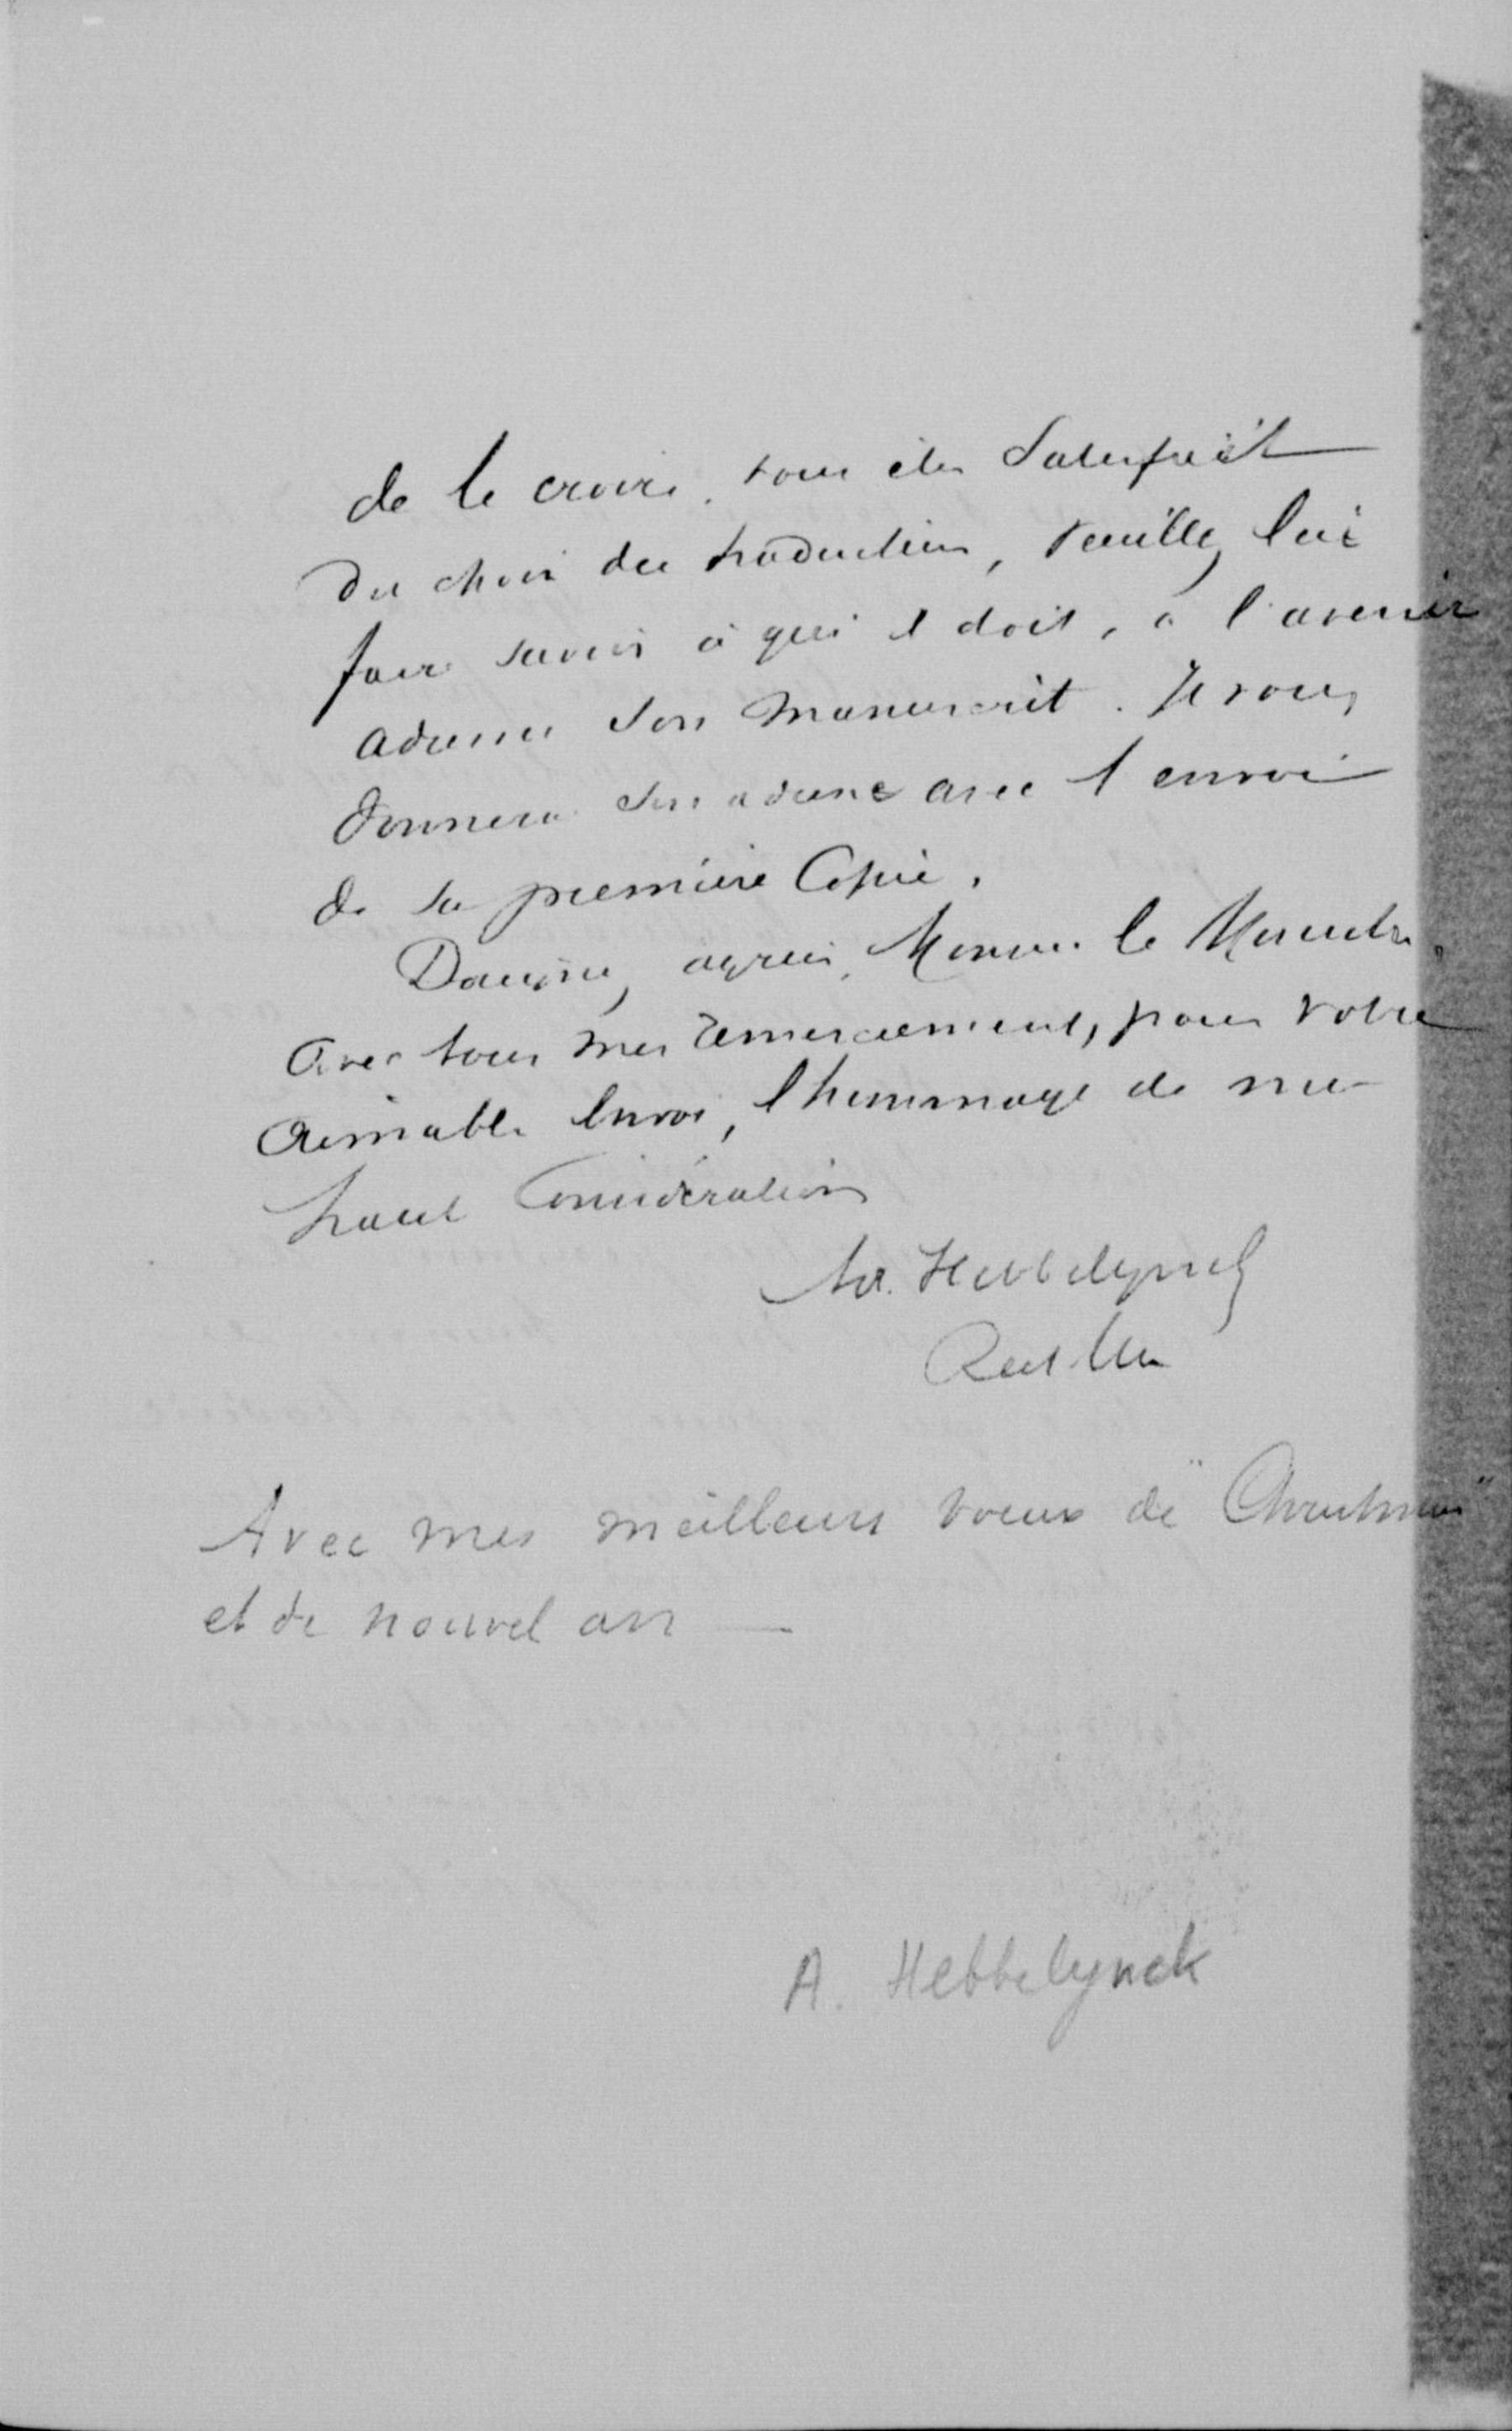 de le croire, vous êtes satisfait
du choix du traducteur, veuillez lui
faire savoir à qui il doit, à l'avenir
adresser son manuscrit. Il vous
donnera son adresse avec l'envoi
de sa première Copie.
Daignez agréer, Monsieur le Ministre,
avec tous mes remerciements, pour votre
aimable envoi, l'hommage de ma
haute Considération
Ad. Hebbelynck
Rect. Un
Avec mes meilleurs voeux de "Christmas"
et de nouvel an —
A. Hebbelynck